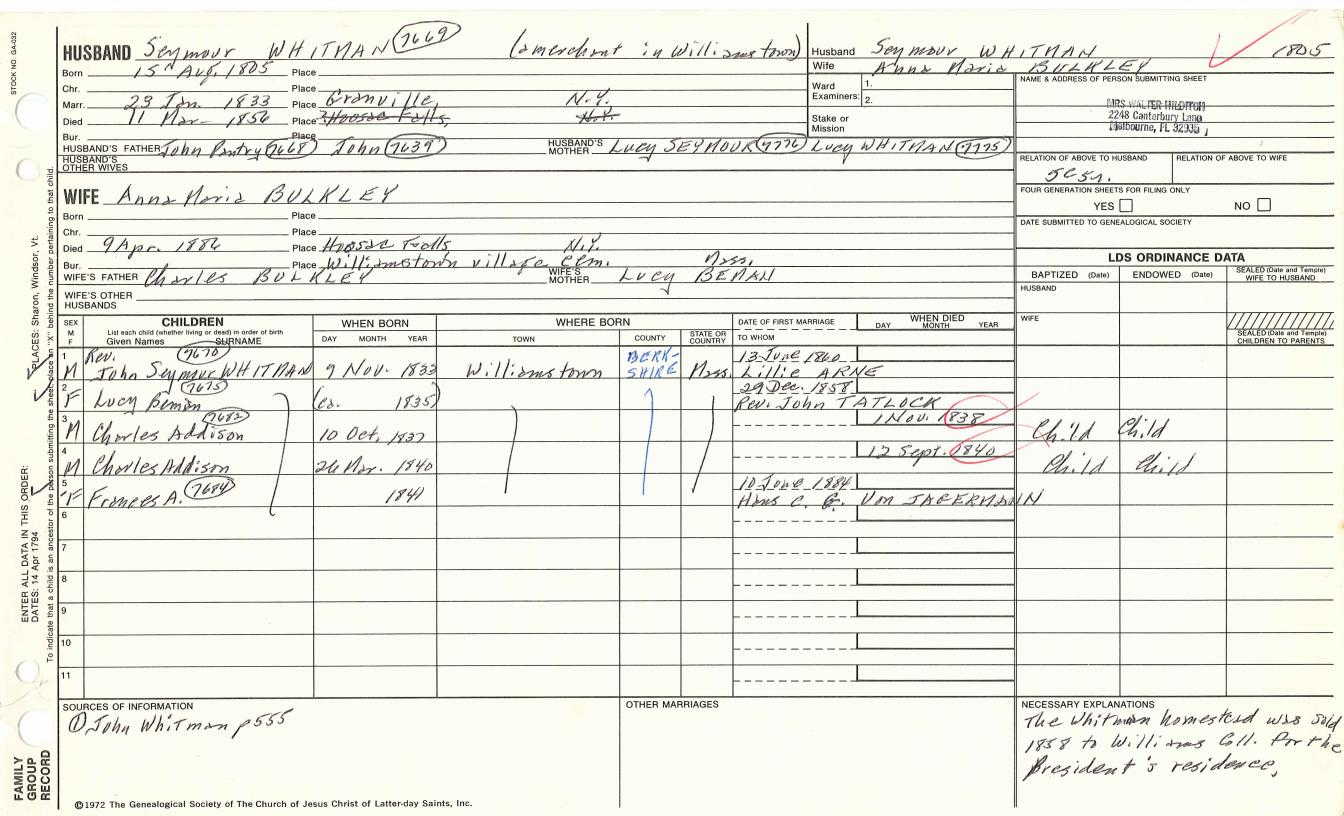 STOCK NO. GA-032
HUSBAND Seymour WHITMAN 7669 (a merchant in Williamstown)
Husband Seymour WHITMAN 1805
Wife Anna Maria BULKLEY
Born 15th Aug. 1805 Place
Chr. Place
Marr. 23 Jan. 1833 Place Granville, N.Y.
Died 11 Mar. 1856 Place Hoosac Falls, N.Y.
Bur. Place
Ward Examiners: 1.
2.
Stake or Mission
NAME & ADDRESS OF PERSON SUBMITTING SHEET
MRS WALTER HILDITCH
2248 Canterbury Lane
Melbourne, FL 32935
HUSBAND'S FATHER John Pantry 7668 John 7639 HUSBAND'S MOTHER Lucy SEYMOUR 7776 Lucy WHITMAN 7775
HUSBAND'S OTHER WIVES
RELATION OF ABOVE TO HUSBAND RELATION OF ABOVE TO WIFE
WIFE Anna Maria BULKLEY
FOUR GENERATION SHEETS FOR FILING ONLY
YES NO
Born Place
Chr. Place
Died 9 Apr. 1886 Place Hoosac Falls N.Y.
Bur. Place Williamstown village Cem. Mass.
DATE SUBMITTED TO GENEALOGICAL SOCIETY
WIFE'S FATHER Charles BULKLEY WIFE'S MOTHER Lucy BEMAN
WIFE'S OTHER HUSBANDS
LDS ORDINANCE DATA
BAPTIZED (Date) ENDOWED (Date) SEALED (Date and Temple) WIFE TO HUSBAND
HUSBAND
WIFE
SEALED (Date and Temple) CHILDREN TO PARENTS
SEX M F
CHILDREN
List each child (whether living or dead) in order of birth
Given Names SURNAME
WHEN BORN
DAY MONTH YEAR
WHERE BORN
TOWN COUNTY STATE OR COUNTRY
DATE OF FIRST MARRIAGE
TO WHOM
WHEN DIED
DAY MONTH YEAR
1 M Rev. 7670 John Seymour WHITMAN 9 Nov. 1833 Williamstown BERKSHIRE Mass. 13 June 1860 Lillie ARNE
2 F 7675 Lucy Beman (ca. 1835) 29 Dec. 1858 Rev. John TATLOCK
3 M 7682 Charles Addison 10 Oct. 1837 1 Nov. 1838 Child Child
4 M Charles Addison 26 Mar. 1840 12 Sept. 1840 Child Child
5 F Frances A. 7684 1841 10 June 1884 Hans C. G. Von JAGERMANN
6
7
8
9
10
11
SOURCES OF INFORMATION
① John Whitman p555
OTHER MARRIAGES
NECESSARY EXPLANATIONS
The Whitman homestead was sold
1858 to Williams Coll. for the
President's residence.
©1972 The Genealogical Society of The Church of Jesus Christ of Latter-day Saints, Inc.
FAMILY GROUP RECORD
ENTER ALL DATA IN THIS ORDER:
DATES: 14 Apr 1794
PLACES: Sharon, Windsor, Vt.
To indicate that a child is an ancestor of the person submitting the sheet, place an "X" behind the number pertaining to that child.